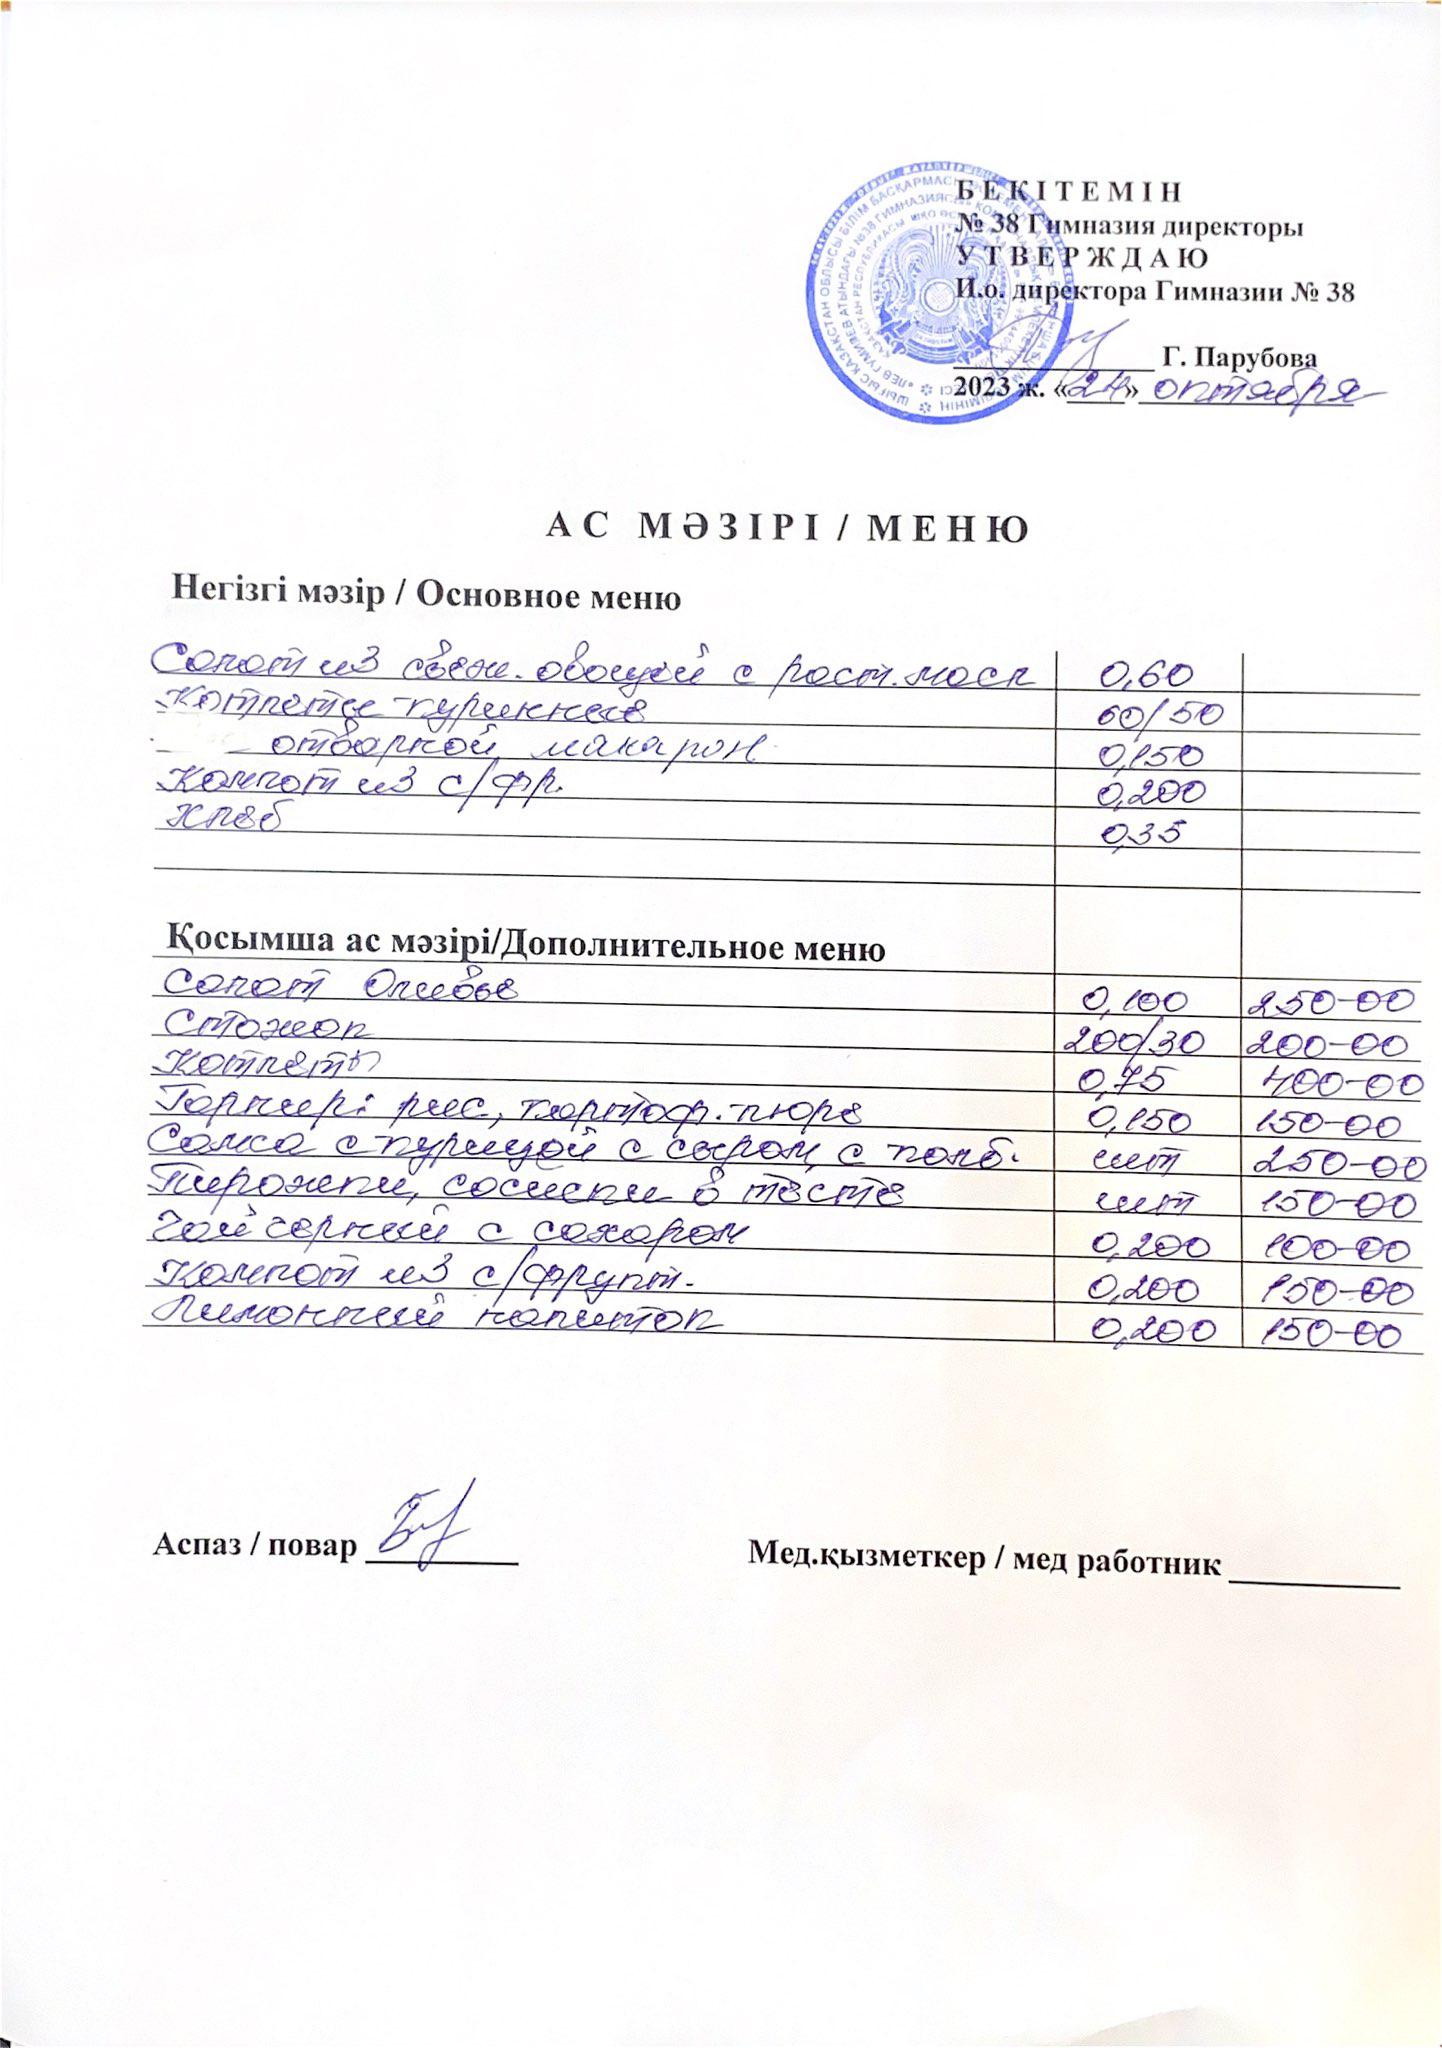 БЕКІТЕМІН
№ 38 Гимназия директоры
УТВЕРЖДАЮ
И.о. директора Гимназии № 38
Г. Парубова
2023 ж. «24» октября
АС МӘЗІРІ / МЕНЮ
Негізгі мәзір / Основное меню
Салат из свеж. овощей с раст. масл 0,60
Котлеты куриные 60/50
отварной макарон 0,150
Компот из с/фр. 0,200
Хлеб 0,35
Қосымша ас мәзірі/Дополнительное меню
Салат Оливье 0,100 250-00
Стожок 200/30 200-00
Котлеты 0,75 400-00
Гарнир: рис, картоф. пюре 0,150 150-00
Самса с курицей с сыром, с колб. шт 250-00
Пирожки, сосиски в тесте шт 150-00
Чай черный с сахаром 0,200 100-00
Компот из с/фрукт. 0,200 150-00
Лимонный напиток 0,200 150-00
Аспаз / повар
Мед.қызметкер / мед работник